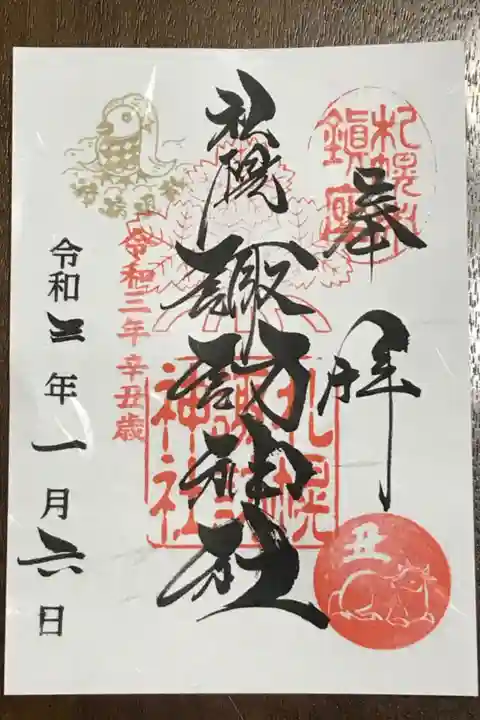 奉拝
札幌
鎮座
札幌諏訪神社
札幌
諏訪
神社
令和三年辛丑歳
令和三年一月六日
丑